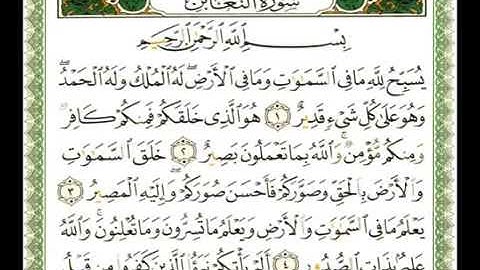 سورة التغابن
بِسْمِ اللَّهِ الرَّحْمَٰنِ الرَّحِيمِ
يُسَبِّحُ لِلَّهِ مَا فِي السَّمَٰوَٰتِ وَمَا فِي الْأَرْضِ ۖ لَهُ الْمُلْكُ وَلَهُ الْحَمْدُ ۖ
وَهُوَ عَلَىٰ كُلِّ شَيْءٍ قَدِيرٌ ١ هُوَ الَّذِي خَلَقَكُمْ فَمِنكُمْ كَافِرٌ
وَمِنكُم مُّؤْمِنٌ ۚ وَاللَّهُ بِمَا تَعْمَلُونَ بَصِيرٌ ٢ خَلَقَ السَّمَٰوَٰتِ
وَالْأَرْضَ بِالْحَقِّ وَصَوَّرَكُمْ فَأَحْسَنَ صُوَرَكُمْ ۖ وَإِلَيْهِ الْمَصِيرُ ٣
يَعْلَمُ مَا فِي السَّمَٰوَٰتِ وَالْأَرْضِ وَيَعْلَمُ مَا تُسِرُّونَ وَمَا تُعْلِنُونَ ۚ وَاللَّهُ
عَلِيمٌ بِذَاتِ الصُّدُورِ ٤ أَلَمْ يَأْتِكُمْ نَبَؤُا الَّذِينَ كَفَرُوا مِن قَبْلُ